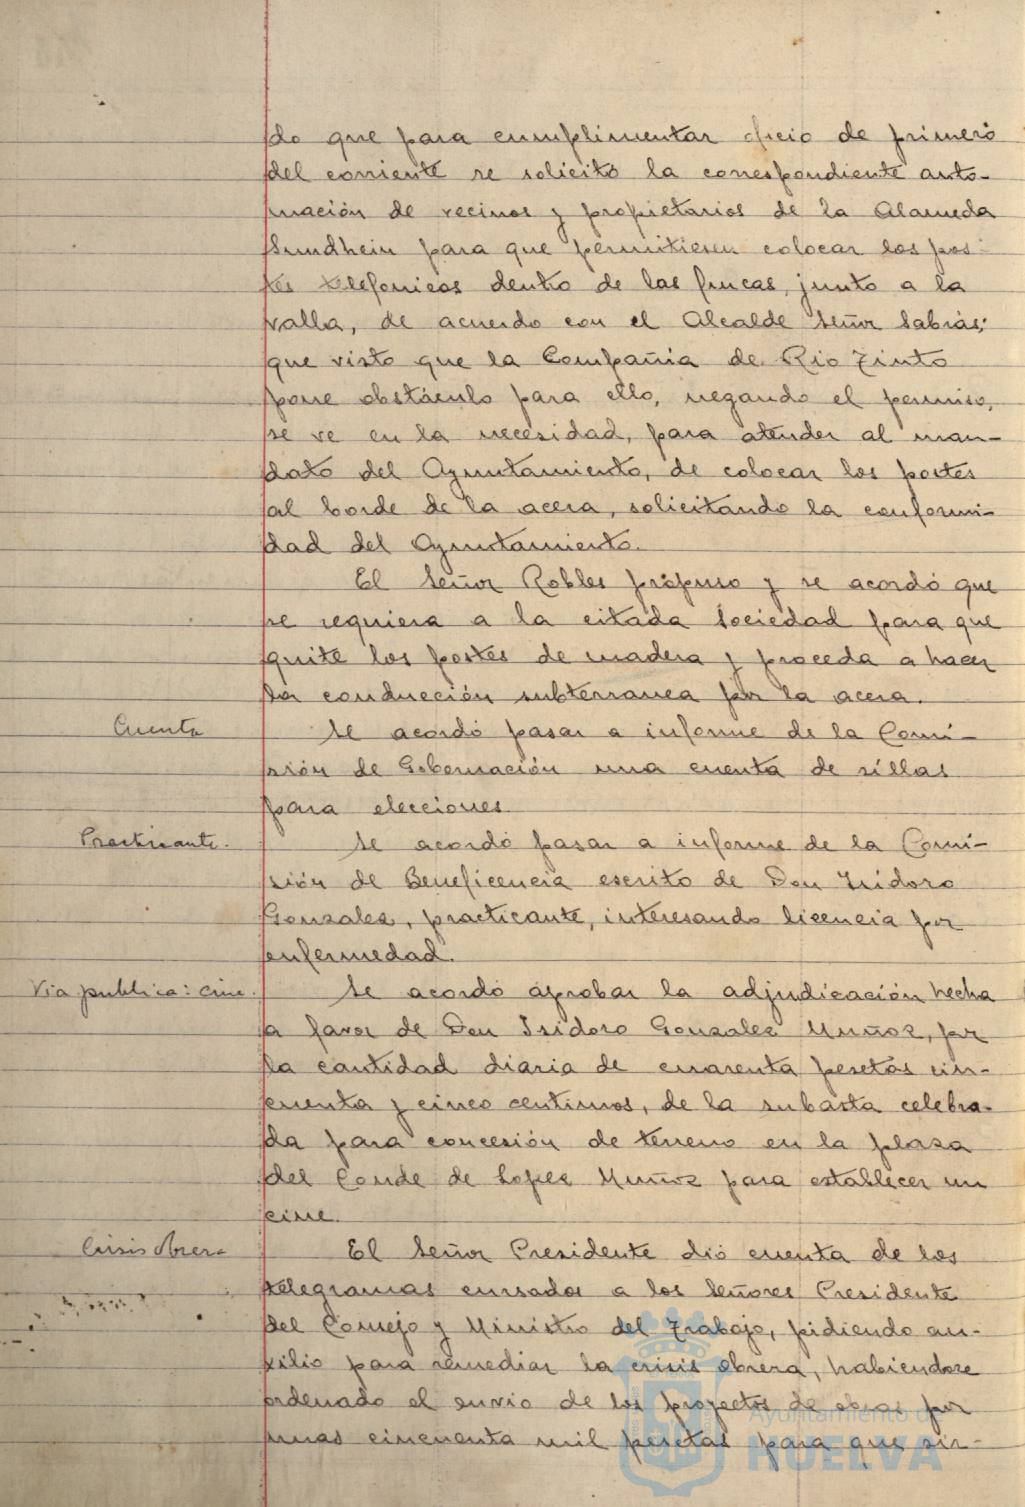 do que para cumplimentar oficio de primero
del corriente se solicitó la correspondiente auto-
rización de vecinos y propietarios de la Alameda
Sundhein para que permitiesen colocar los pos-
tes telefonicos dentro de las fincas, junto a la
valla, de acuerdo con el Alcalde Señor Sabrás;
que visto que la Compañia de Rio Tinto
pone obstáculo para ello, negando el permiso,
se ve en la necesidad, para atender al man-
dato del Ayuntamiento, de colocar los postes
al borde de la acera, solicitando la conformi-
dad del Ayuntamiento.
El Señor Robles propuso y se acordó que
se requiera a la citada Sociedad para que
quite los postes de madera y proceda a hacer
la conducción subterranea por la acera.
Cuenta
Se acordó pasar a informe de la Comi-
sión de Gobernación una cuenta de sillas
para elecciones.
Practicante.
Se acordó pasar a informe de la Comi-
sión de Beneficencia escrito de Don Isidoro
Gonzalez, practicante, interesando licencia por
enfermedad.
Via publica: cine.
Se acordó aprobar la adjudicación hecha
a favor de Don Isidoro Gonzalez Muñoz, por
la cantidad diaria de cuarenta pesetas cin-
cuenta y cinco centimos, de la subasta celebra-
da para concesión de terreno en la plaza
del Conde de Lopez Muñoz para establecer un
cine.
Crisis obrera
El Señor Presidente dió cuenta de los
telegramas cursados a los Señores Presidente
del Consejo y Ministro del Trabajo, pidiendo au-
xilio para remediar la crisis obrera, habiendose
ordenado el envio de los proyectos de obras por
unas cincuenta mil pesetas para que sir-
Ayuntamiento de
HUELVA